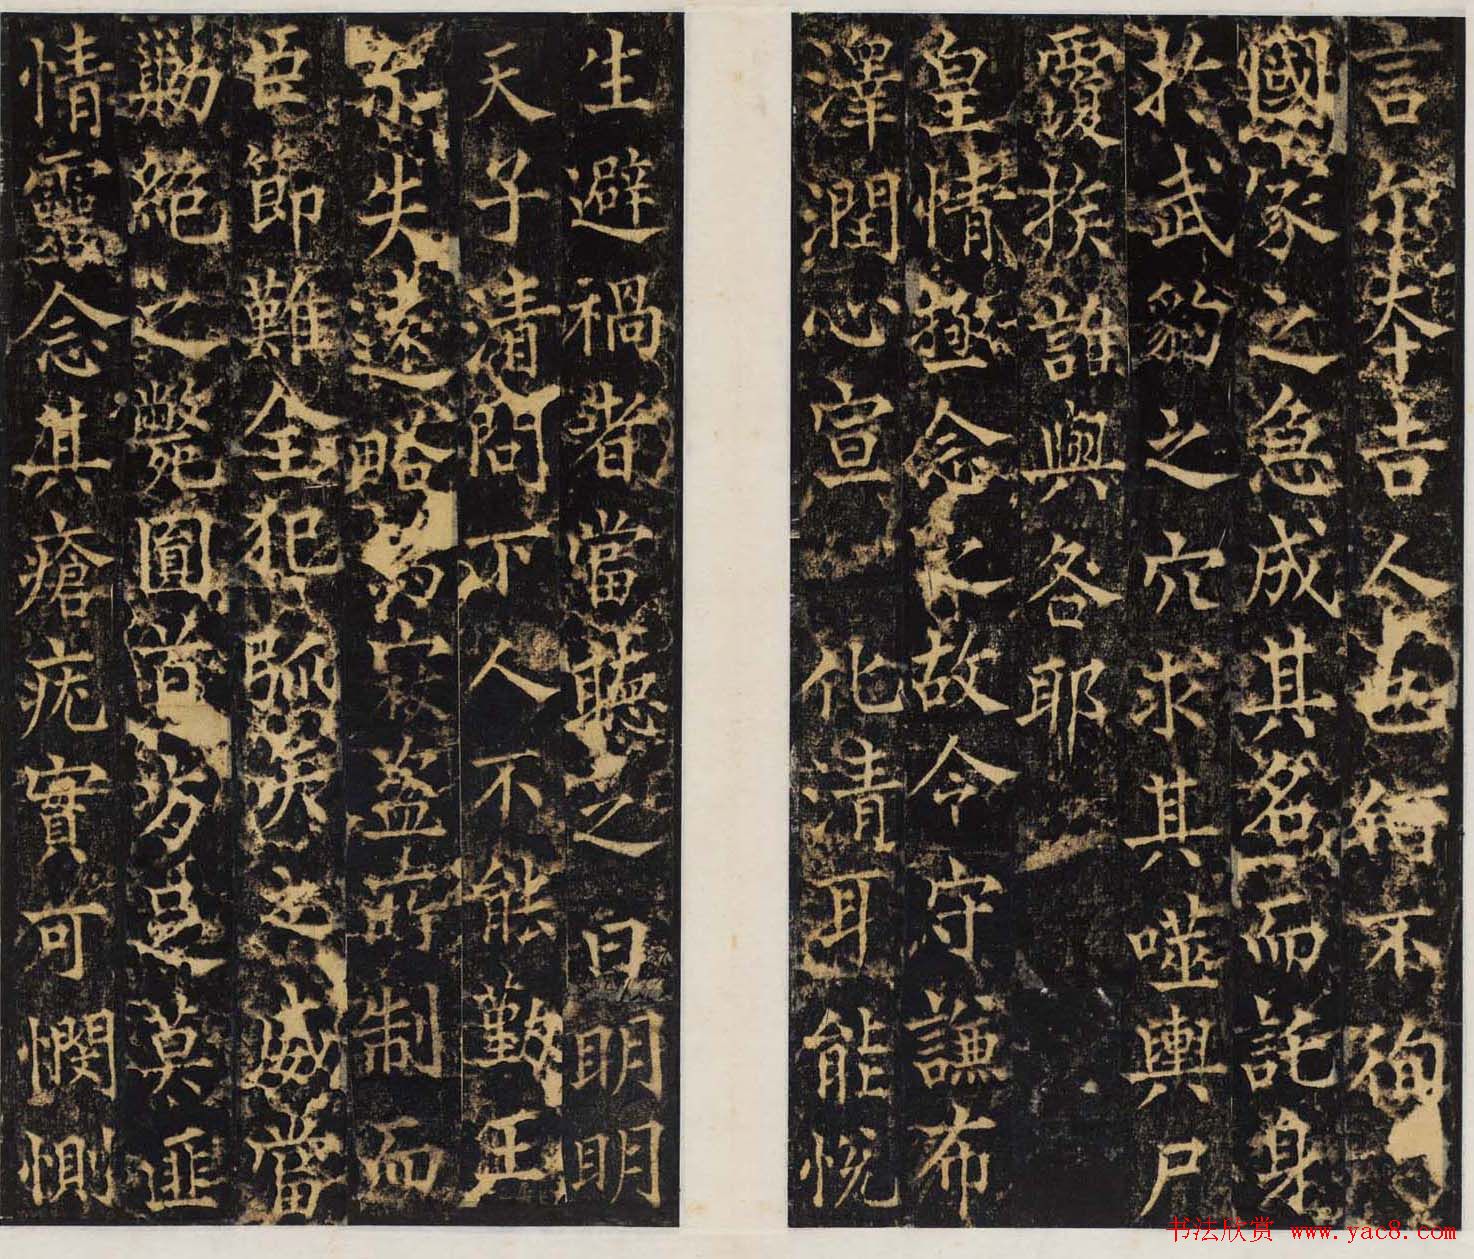 言夫吉人也不徇
國家之急成其名而託身
於武豹之穴求其噬輿尸
覆族誰與咎耶
皇情極念之故令守謙布
澤潤心宣化清耳能悅
生避禍者當聽之曰明明
天子清問下人不能勤王
失遠略寇盜制而
臣節難全犯弧矢之威當
勦絕之斃圓首方足莫匪
情靈念其瘡疣實可憫惻
书法欣赏 www.yac8.com